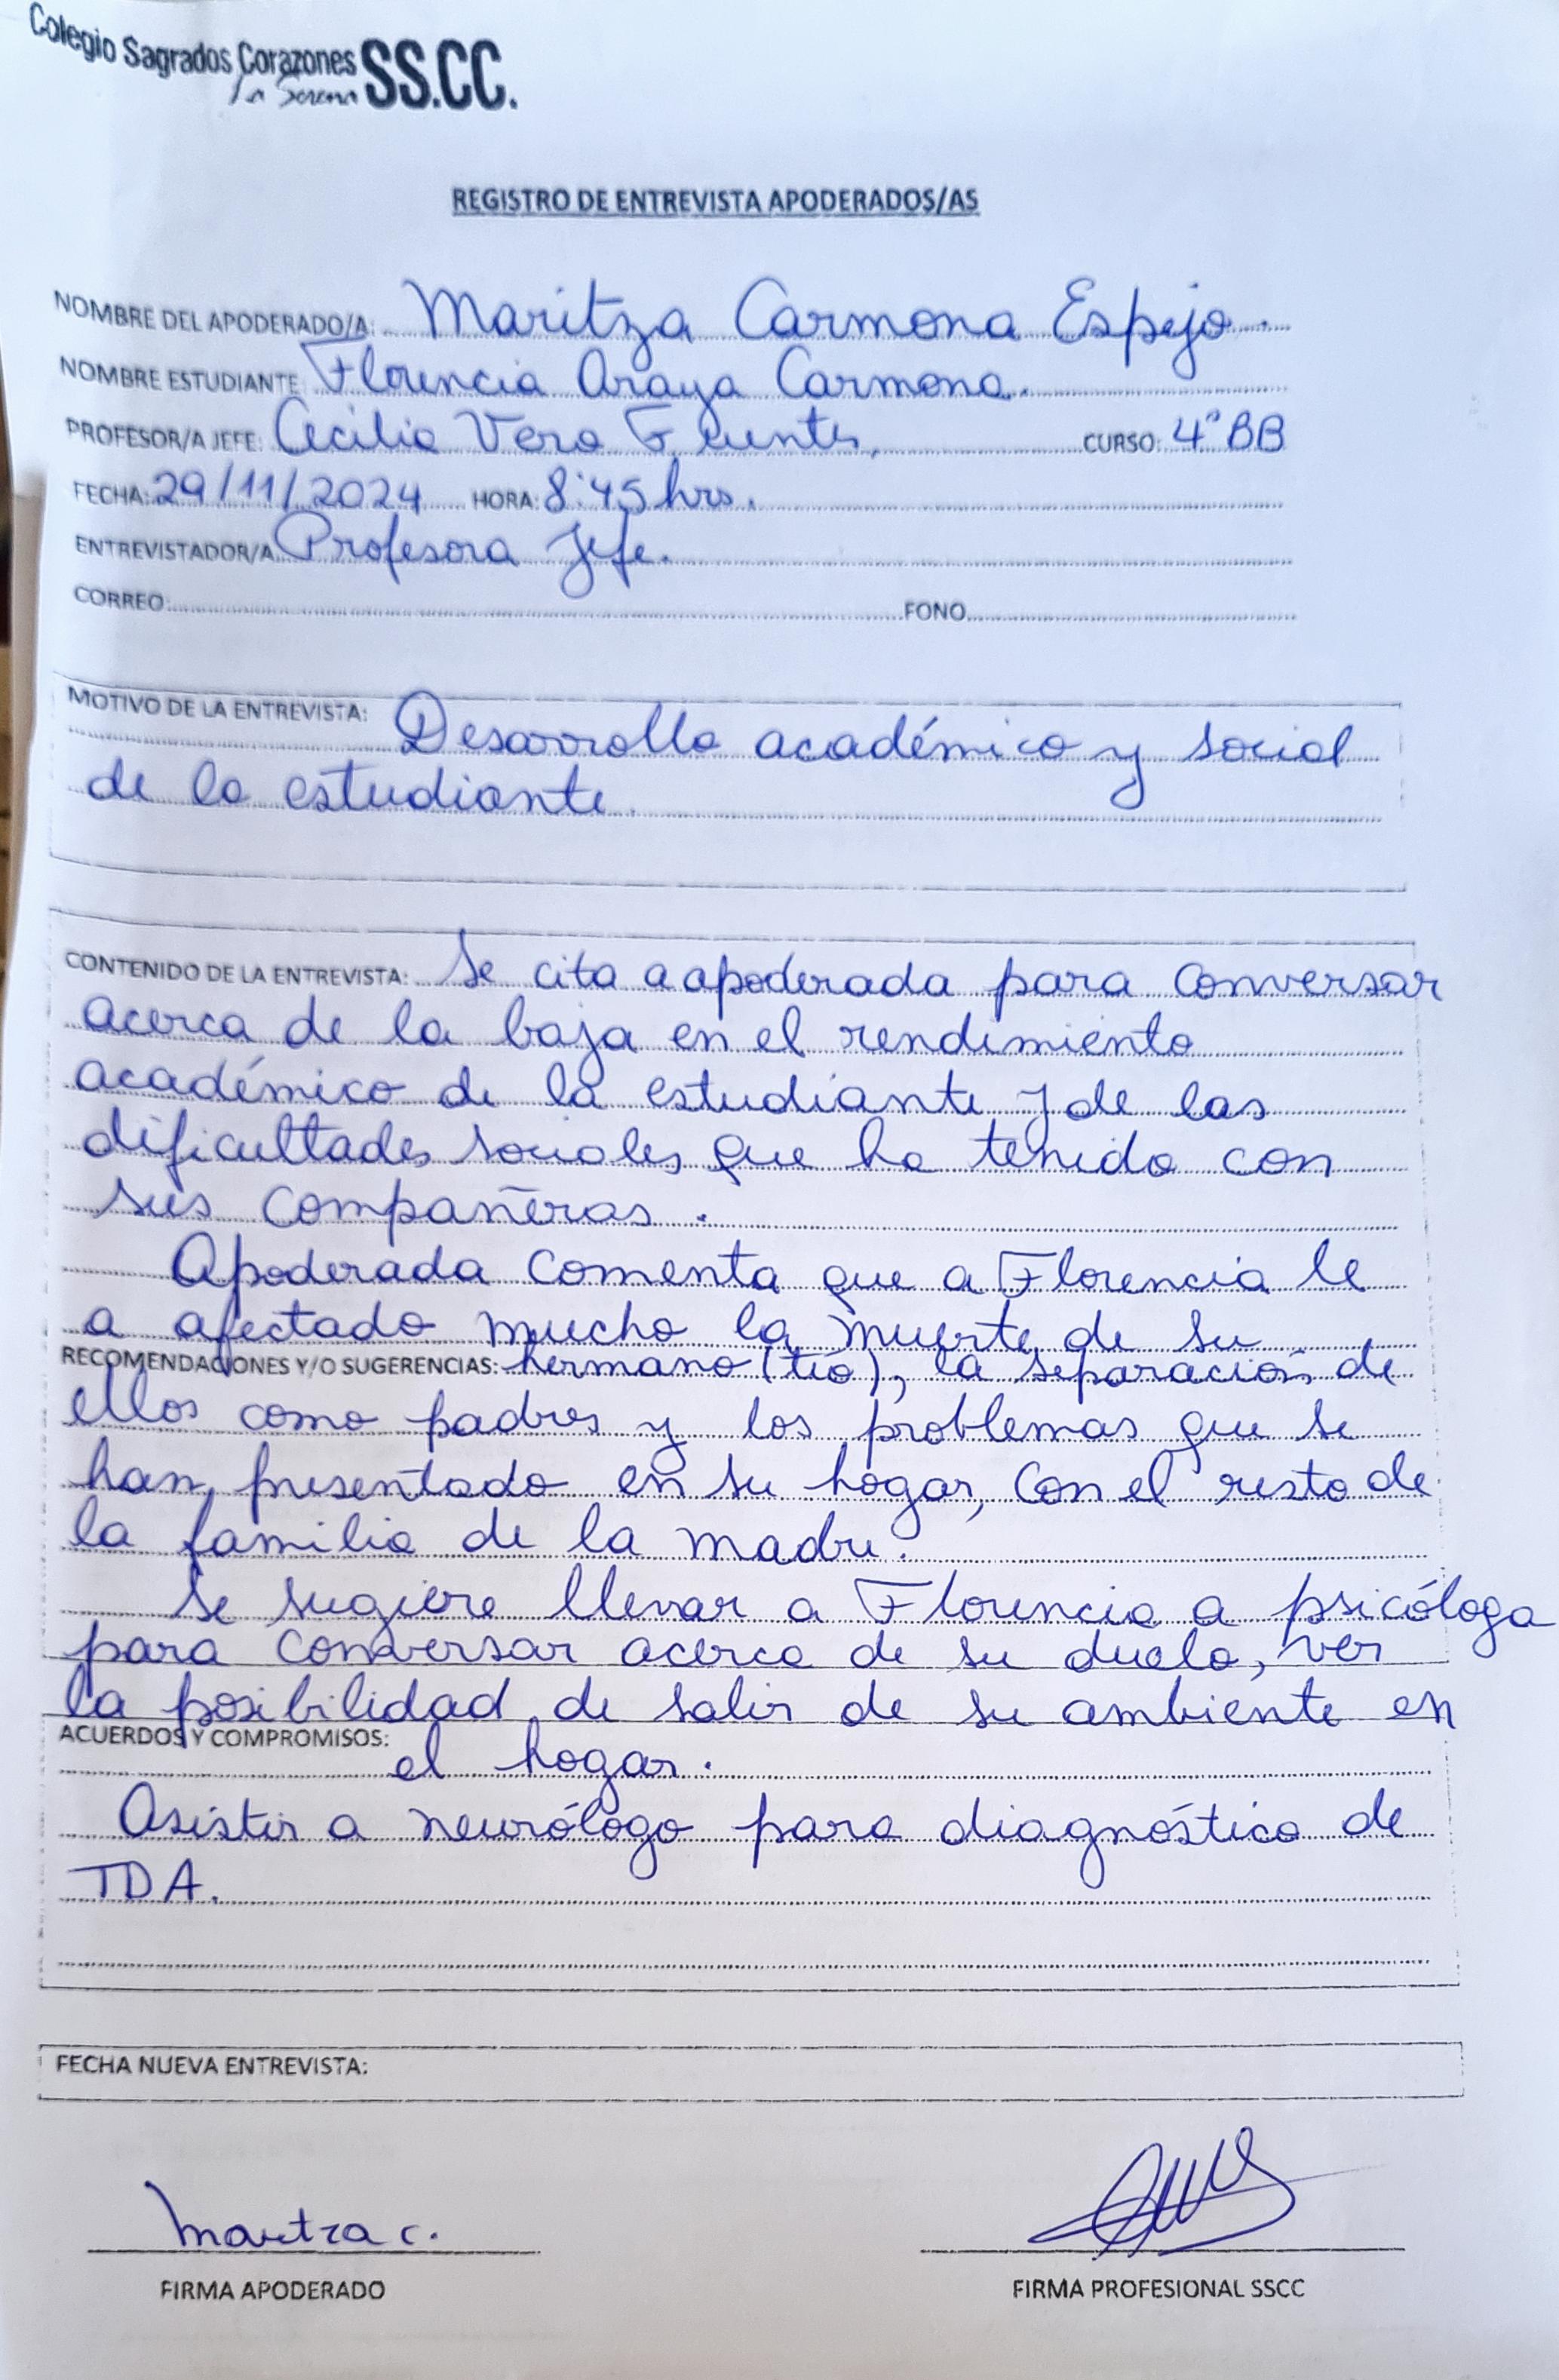 Colegio Sagrados Corazones SS.CC.
La Serena
REGISTRO DE ENTREVISTA APODERADOS/AS
NOMBRE DEL APODERADO/A: Maritza Carmona Espejo.
NOMBRE ESTUDIANTE Florencia Araya Carmona.
PROFESOR/A JEFE: Cecilia Vera Fuentes, CURSO: 4° BB
FECHA: 29/11/2024 HORA: 8:45 hrs.
ENTREVISTADOR/A Profesora Jefe.
CORREO: FONO
MOTIVO DE LA ENTREVISTA: Desarrollo académico y social
de la estudiante.
CONTENIDO DE LA ENTREVISTA: Se cita a apoderada para conversar
acerca de la baja en el rendimiento
académico de la estudiante y de las
dificultades sociales que ha tenido con
sus compañeras.
Apoderada comenta que a Florencia le
a afectado mucho la muerte de su
RECOMENDACIONES Y/O SUGERENCIAS: hermano (tío), la separación de
ellos como padres y los problemas que se
han presentado en su hogar, con el resto de
la familia de la madre.
Se sugiere llevar a Florencia a psicóloga
para conversar acerca de su duelo, ver
la posibilidad de salir de su ambiente en
ACUERDOS Y COMPROMISOS: el hogar.
Asistir a neurólogo para diagnóstico de
TDA.
FECHA NUEVA ENTREVISTA:
Maritza C.
FIRMA APODERADO FIRMA PROFESIONAL SSCC